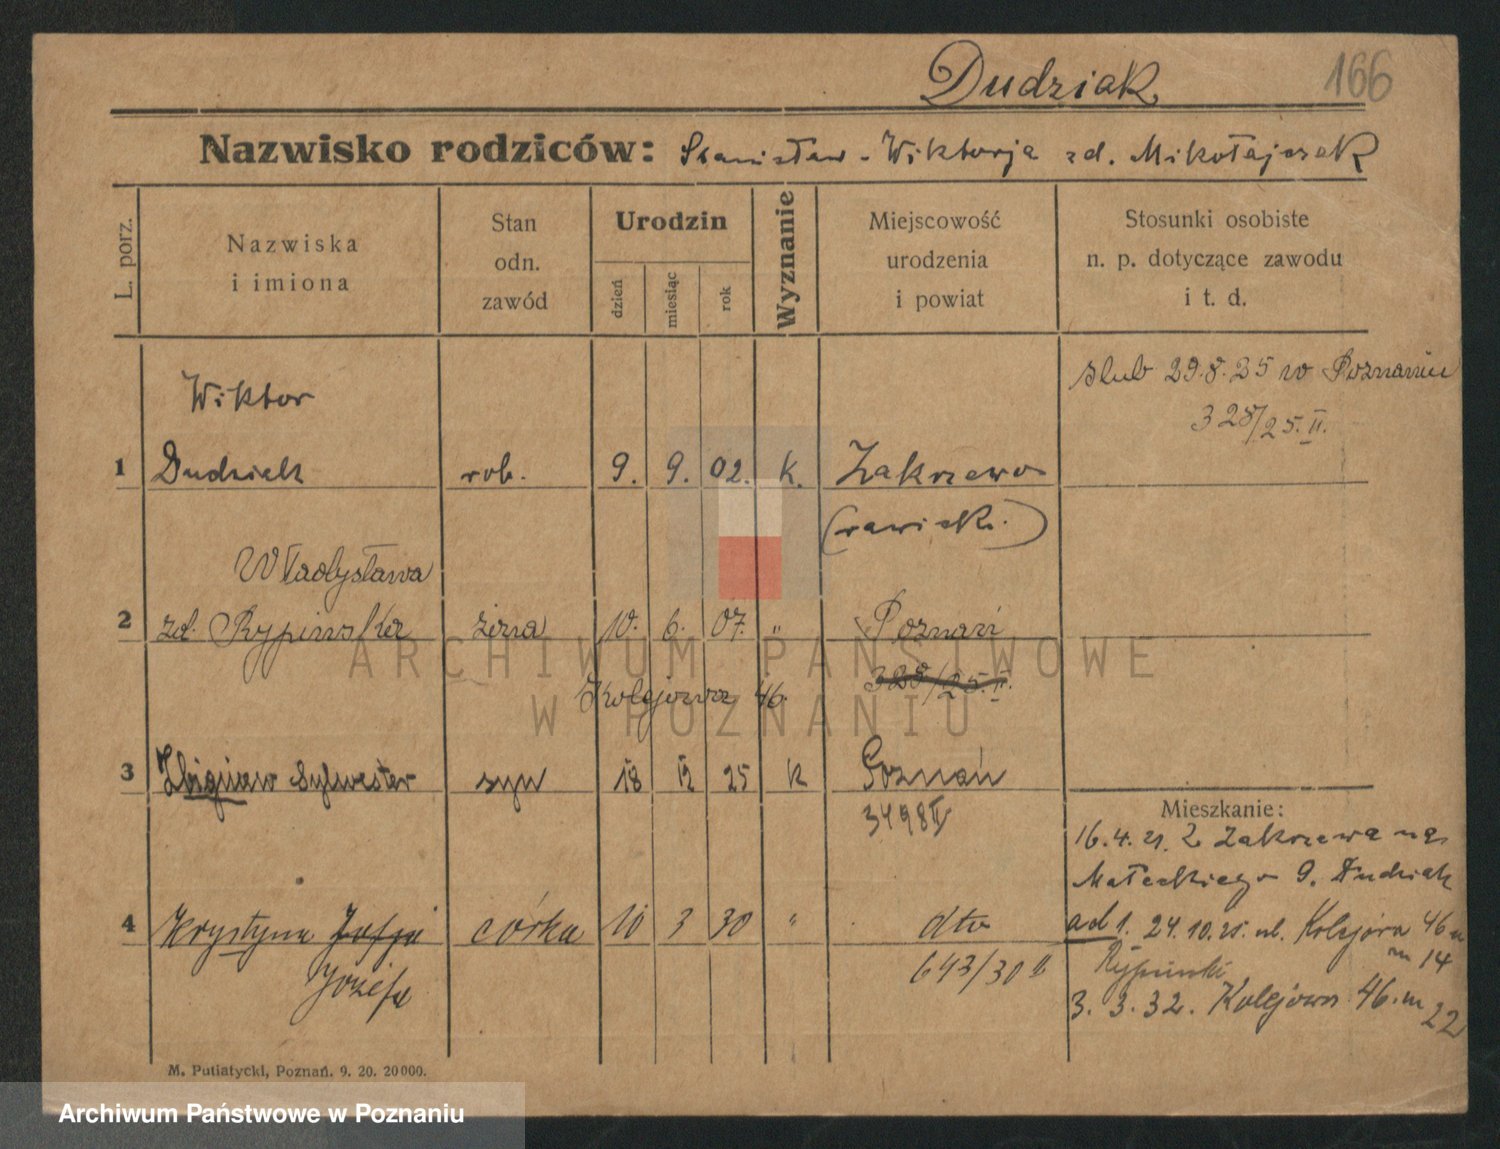 Dudziak
166
Nazwisko rodziców: Stanisław - Wiktorja zd. Mikołajczak
L. porz.
Nazwiska
i imiona
Stan
odn.
zawód
Urodzin
dzień
miesiąc
rok
Wyznanie
Miejscowość
urodzenia
i powiat
Stosunki osobiste
n. p. dotyczące zawodu
i t. d.
ślub 29.8.25 w Poznaniu
328/25.II.
Wiktor
1 Dudziak rob. 9. 9. 02. k. Zakrzewo
(rawick.)
Władysława
2 zd. Rypinska żona 10. 6. 07. " Poznań
Kolejowa 46. 328/25.II.
3 Zbigniew Sylwester syn 18 12 25 k Poznań
3498 II
Mieszkanie:
16.4.21. Z Zakrzewa
Małeckiego 9. Dudziak
4 Krystyna Zofja córka 10 3 30 " dto
Józefa
643/30 II
ad 1. 24.10.25. ul. Kolejowa 46
m 14
Rypinski
3. 3. 32. Kolejowa 46. m 22
M. Putiatycki, Poznań. 9. 20. 20000.
ARCHIWUM PAŃSTWOWE
W POZNANIU
Archiwum Państwowe w Poznaniu